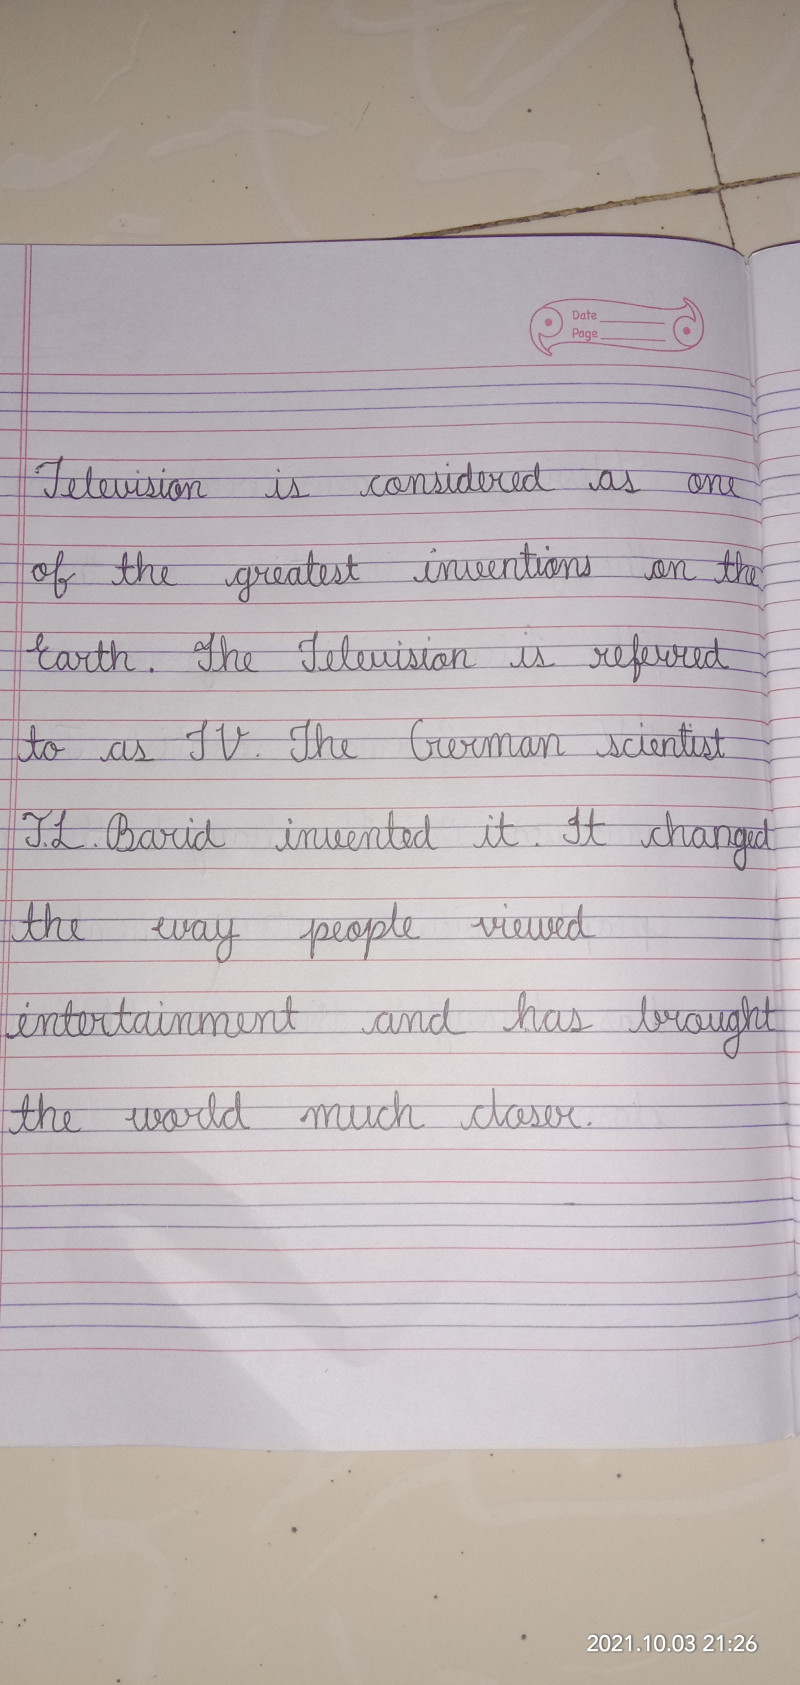 Date
Page
Television is considered as one
of the greatest inventions on the
Earth. The Television is referred
to as TV. The German scientist
T.L. Barid invented it. It changed
the way people viewed
entertainment and has brought
the world much closer.
2021.10.03 21:26